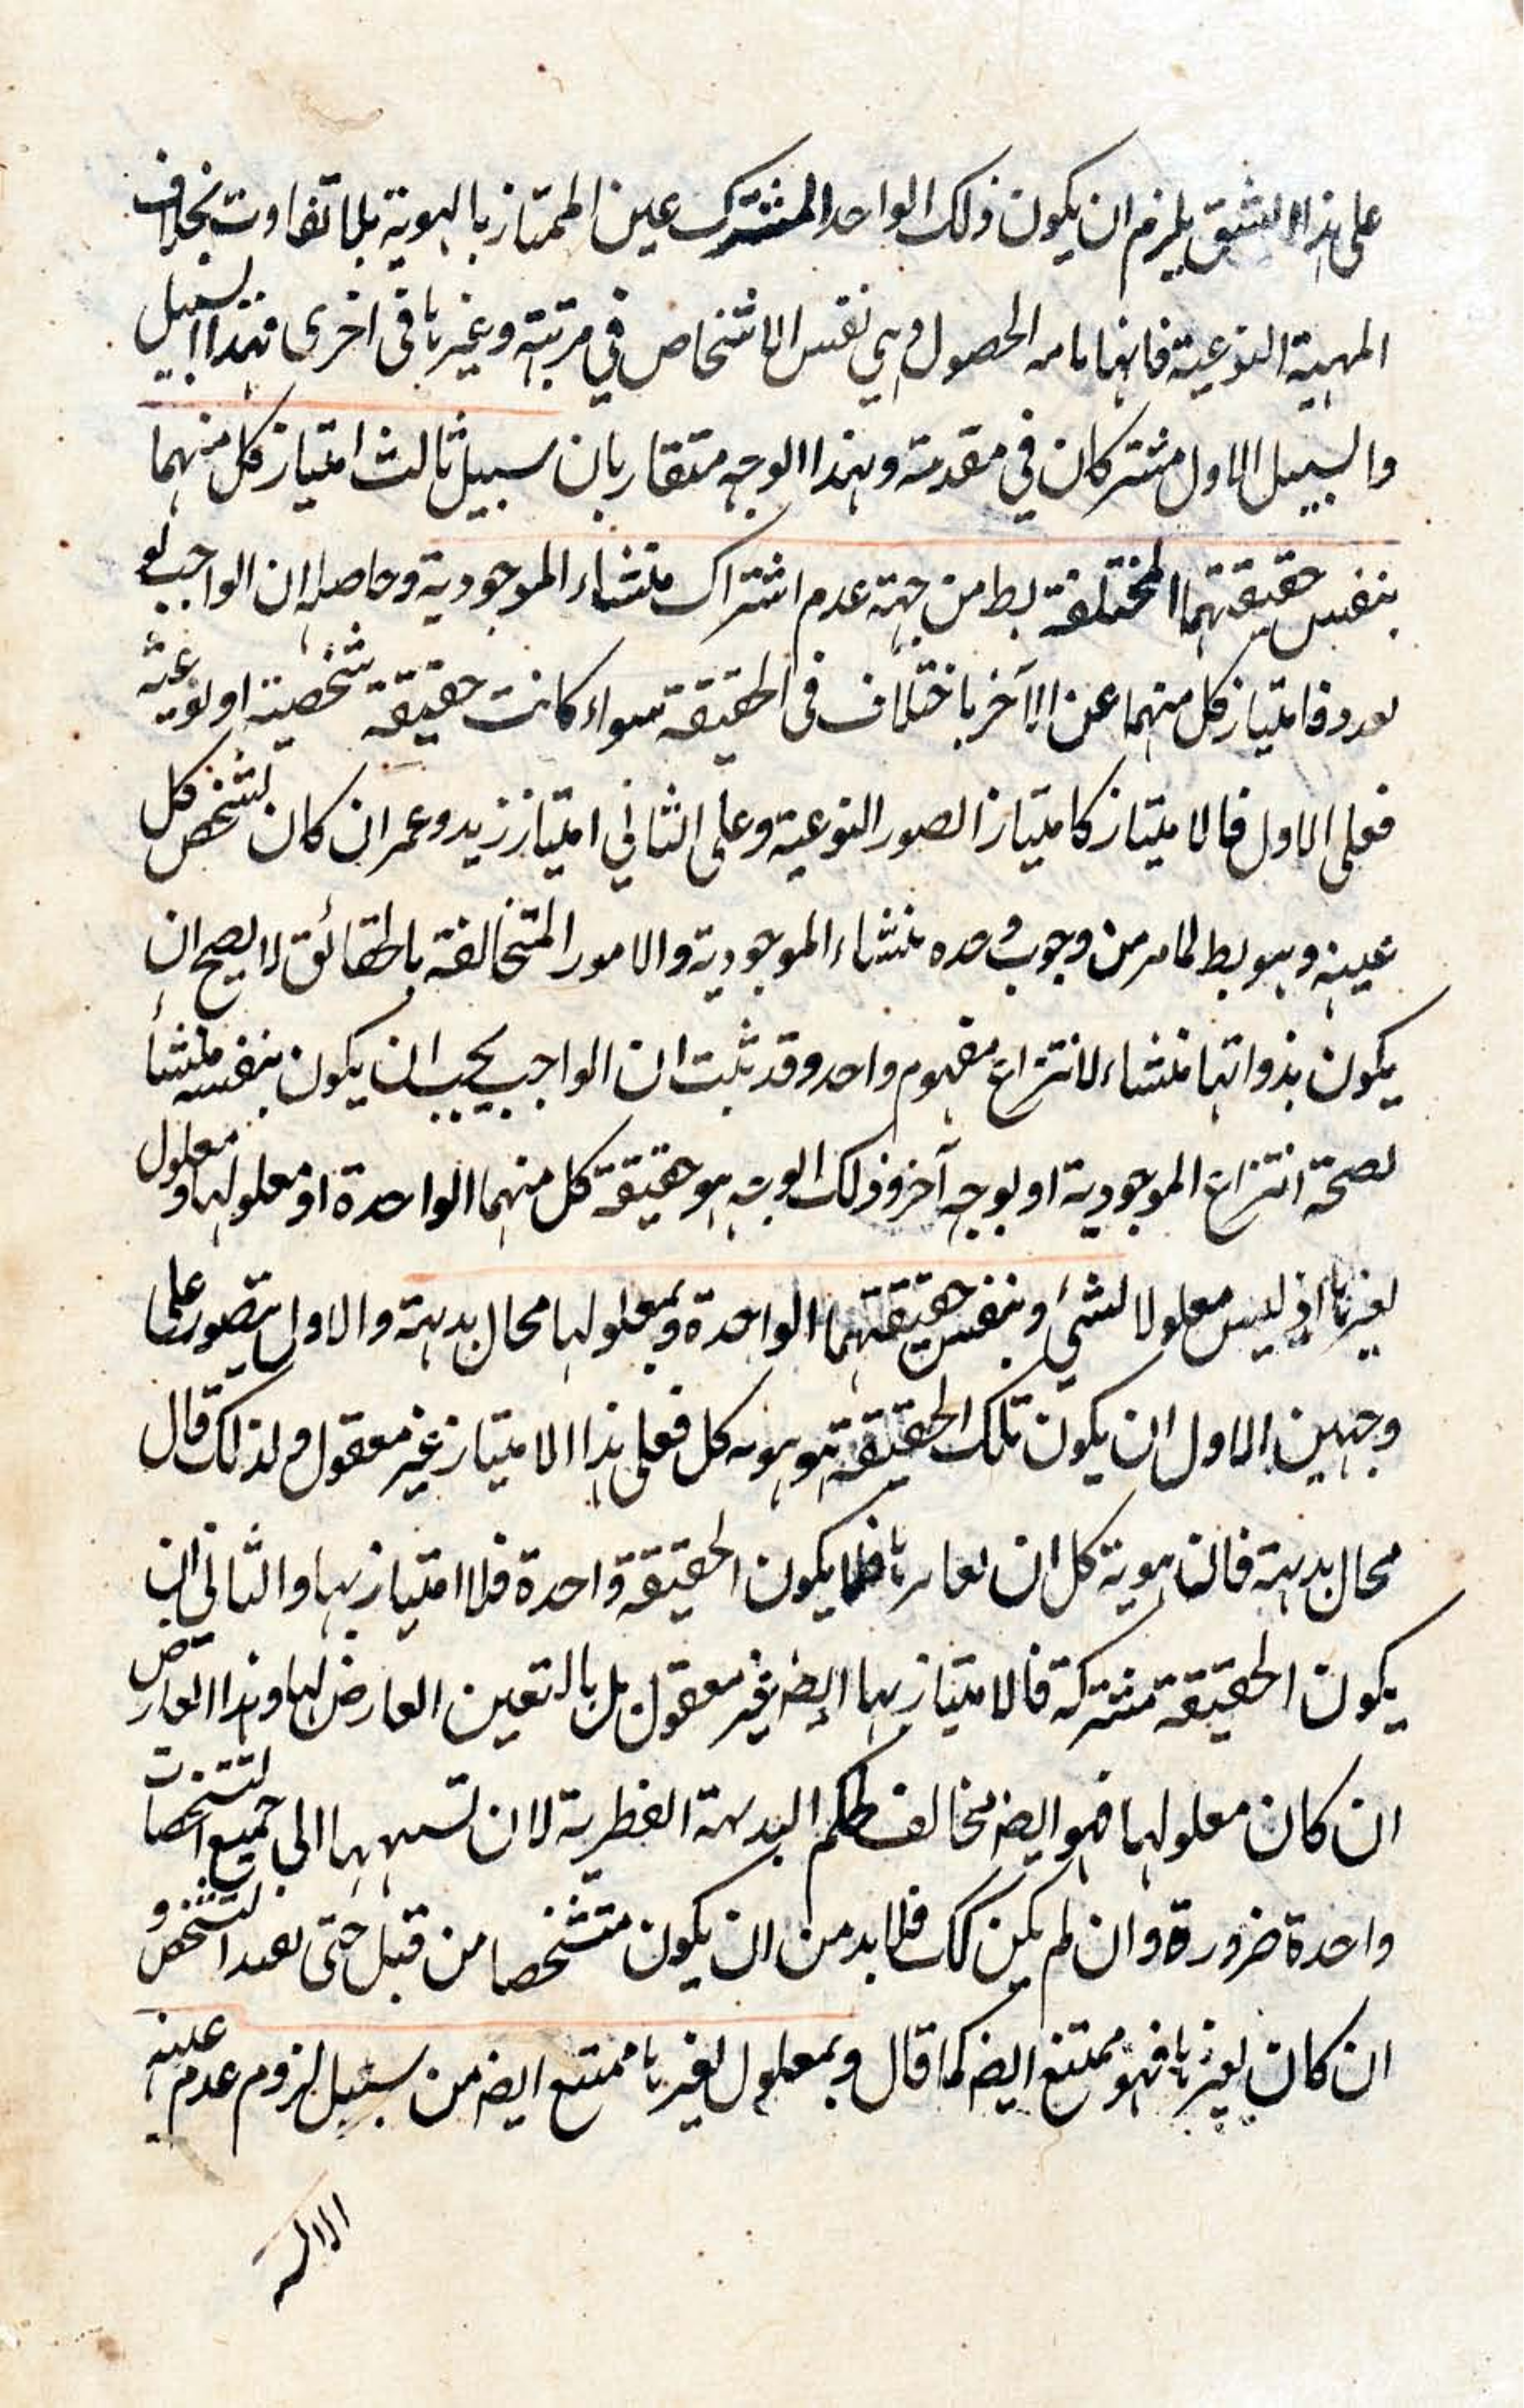 على هذا الشق يلزم ان يكون ذلك الواحد المشترك عين الممتاز بالهوية بلا تفاوت بخلاف
المهية النوعية فانها الحصول هي نفس الاشخاص في مرتبة وغيرها في اخرى فهذا السبيل
والسبيل الاول مشتركان في مقدمة وبهذا الوجه متقاربان سبيل ثالث امتياز كل منهما
بنفس حقيقتهما المختلفة بط من جهة عدم اشتراك منشاء الموجودية وحاصله ان الواجب لو
تعدد فامتياز كل منهما عن الآخر باختلاف في الحقيقة سواء كانت حقيقة شخصية او نوعية
فعلى الاول فالامتياز كامتياز الصور النوعية وعلى الثاني امتياز زيد وعمر ان كان تشخص كل
عينه وهو بط لما مر من وجوب وحدة منشاء الموجودية والامور المتخالفة بالحقائق لا يصح ان
يكون بذواتها منشاء لانتزاع مفهوم واحد وقد ثبت ان الواجب يجب ان يكون بنفسه منشأ
لصحة انتزاع الموجودية او لوجه آخر وذلك الوجه هو حقيقة كل منهما الواحدة او معلولها او معلول
لغيرها اذ ليس معلولا لشيء وبنفس حقيقتهما الواحدة وبمعلولها محال بديهة والاول يتصور على
وجهين الاول ان يكون تلك الحقيقة هو هوية كل فعلى هذا الامتياز غير معقول ولذلك قال
محال بديهة فان هوية كل ان فلا يكون الحقيقة واحدة فلا امتياز بها والثاني ان
يكون الحقيقة مشتركة فالامتياز بها ايضہ غير معقول بل بالتعين العارض لها وهذا العارض
ان كان معلولهما فهو ايضہ مخالف لحكم البديهة الفطرية لان نسبتهما الى جميع التشخصات
واحدة ضرورة وان لم يكن كك فلا بد من ان يكون متشخصا من قبل حتى التشخص و
ان كان لغيرها فهو ممتنع ايضہ كما قال وبمعلول لغيرها ممتنع ايضہ من سبيل لزوم عدم عينية